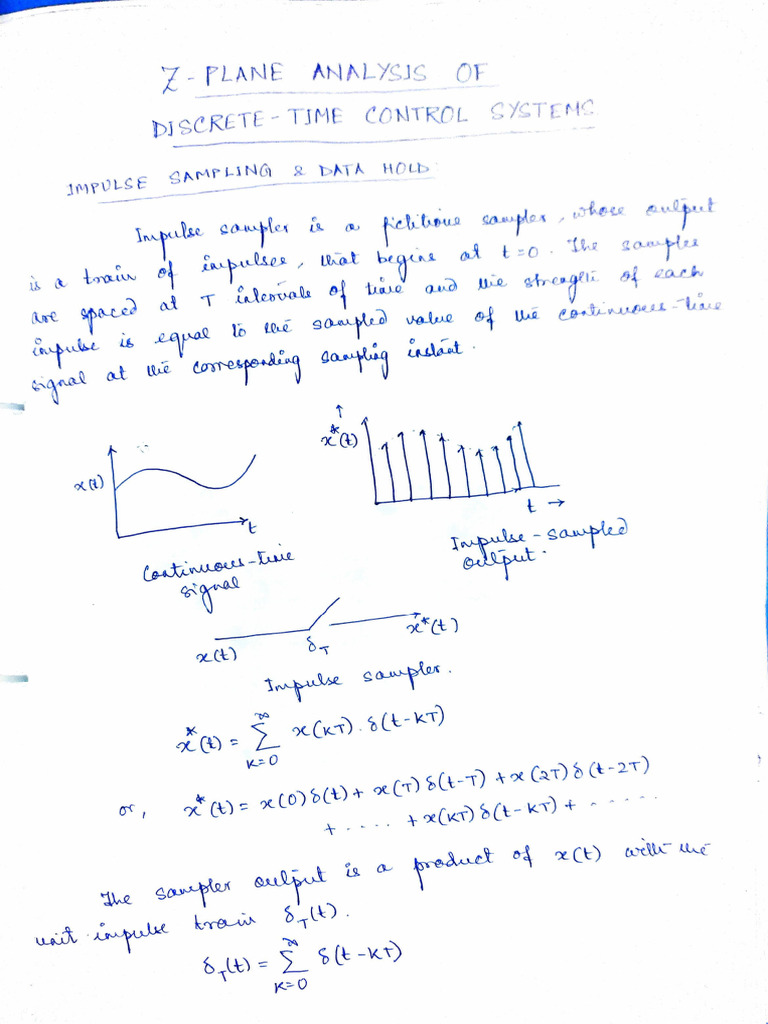 Z-PLANE ANALYSIS OF
DISCRETE-TIME CONTROL SYSTEMS
IMPULSE SAMPLING & DATA HOLD:
Impulse sampler is a fictitious sampler, whose output
is a train of impulses, that begins at t=0. The samples
are spaced at T intervals of time and the strength of each
impulse is equal to the sampled value of the continuous-time
signal at the corresponding sampling instant.
x(t)
t
Continuous-time
signal
↑
x*(t)
t →
Impulse-sampled
output.
x(t)
δ_T
x*(t)
Impulse sampler.
x*(t) = ∞∑K=0 x(KT). δ(t-KT)
or, x*(t) = x(0)δ(t) + x(T)δ(t-T) + x(2T)δ(t-2T)
+ ..... + x(KT)δ(t-KT) + ......
The sampler output is a product of x(t) with the
unit impulse train δ_T(t).
δ_T(t) = ∞∑K=0 δ(t-KT)